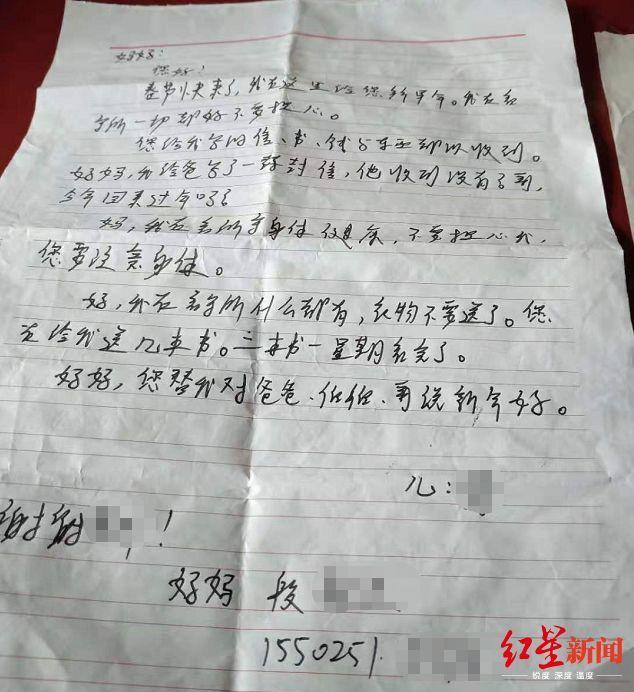 好妈：
您好！
春节快来了，我在这里给您拜早年。我在看
守所一切都好不要担心。
您给我写的信、书、钱与东西都以收到。
好妈，我给爸写了一封信，他收到没有，哥
今年回来过年吗？
妈，我在看所守身体健康，不要担心我，
您要注意身体。
好，我在看守所什么都有，衣物不要送了。您
在给我送几本书。二本书一星期看完了。
好妈，您替我对爸爸、伯伯、哥说新年好。
儿：
谢谢！
好妈 段
1550251
红星新闻
锐度 深度 温度